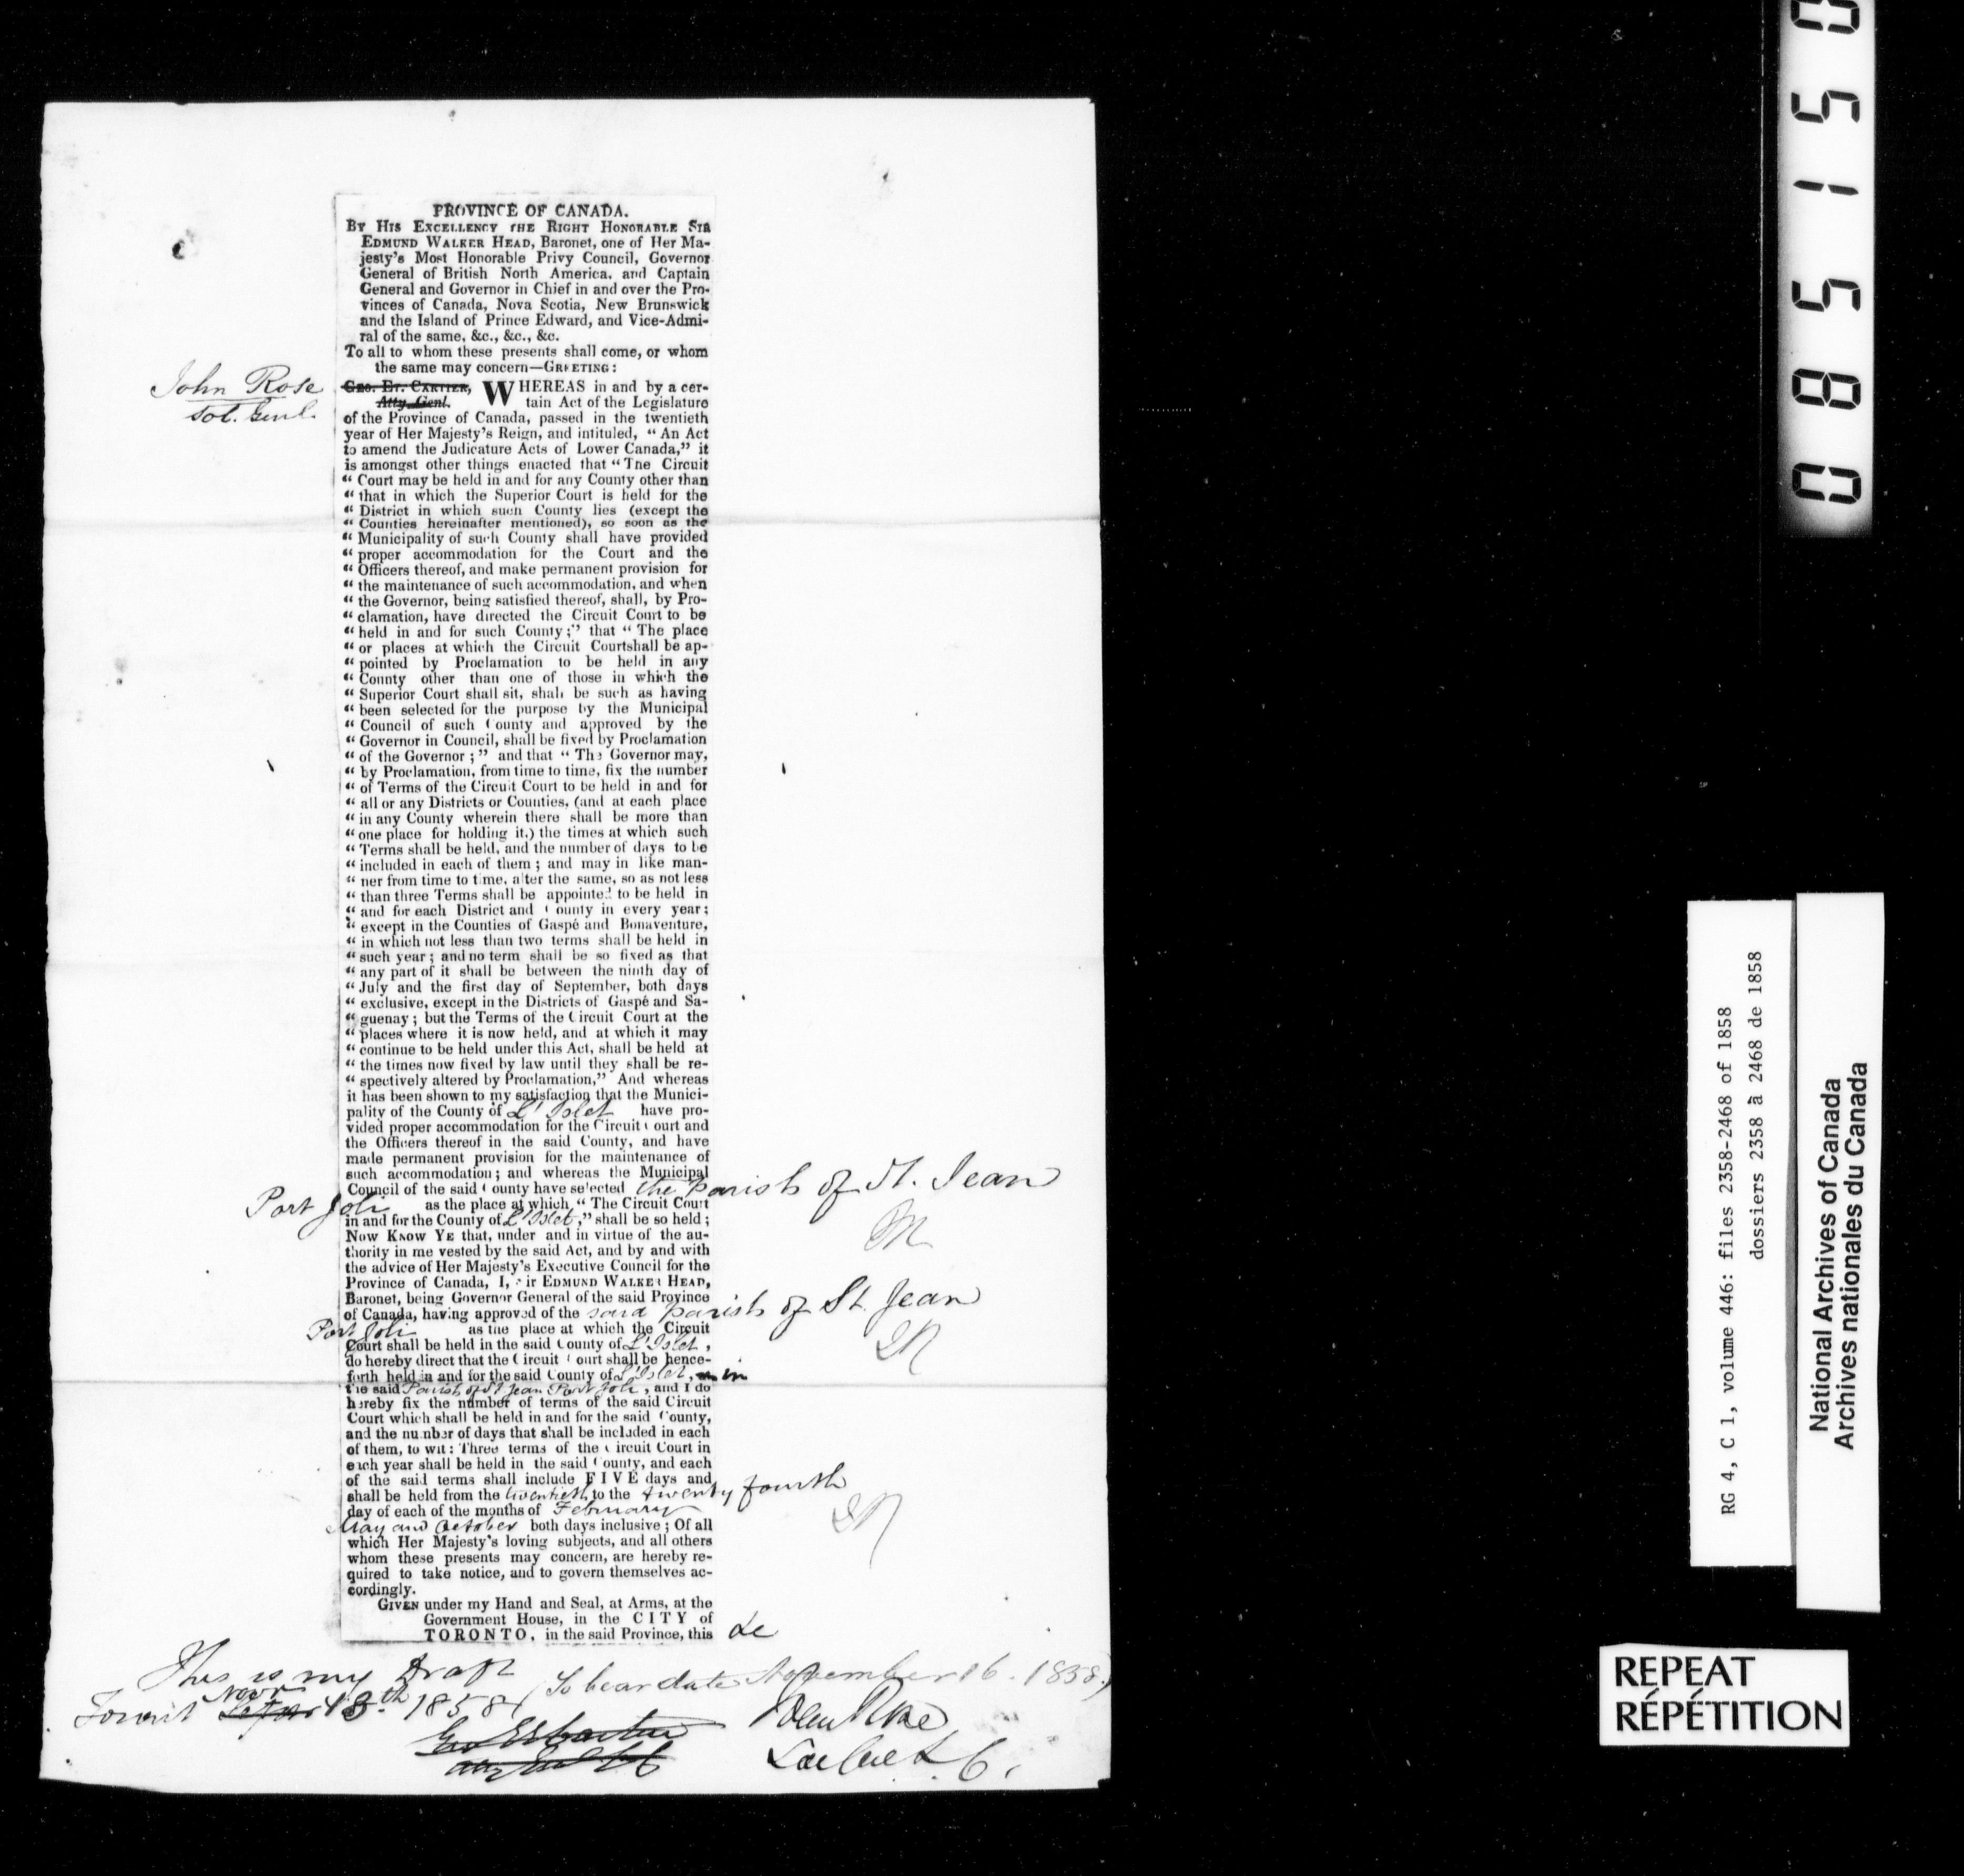 PROVINCE OF CANADA.
BY HIS EXCELLENCY THE RIGHT HONORABLE SIR
EDMUND WALKER HEAD, Baronet, one of Her Ma-
jesty's Most Honorable Privy Council, Governor
General of British North America, and Captain
General and Governor in Chief in and over the Pro-
vinces of Canada, Nova Scotia, New Brunswick
and the Island of Prince Edward, and Vice-Admi-
ral of the same, &c., &c., &c.
To all to whom these presents shall come, or whom
the same may concern—GREETING:
John Rose
Sol. Genl.
GEO. ET. CARTIER,
Atty. Genl.
WHEREAS in and by a cer-
tain Act of the Legislature
of the Province of Canada, passed in the twentieth
year of Her Majesty's Reign, and intituled, "An Act
to amend the Judicature Acts of Lower Canada," it
is amongst other things enacted that "Tne Circuit
" Court may be held in and for any County other than
" that in which the Superior Court is held for the
" District in which such County lies (except the
" Counties hereinafter mentioned), so soon as the
" Municipality of such County shall have provided
" proper accommodation for the Court and the
" Officers thereof, and make permanent provision for
" the maintenance of such accommodation, and when
" the Governor, being satisfied thereof, shall, by Pro-
" clamation, have directed the Circuit Court to be
" held in and for such County;" that " The place
" or places at which the Circuit Courtshall be ap-
" pointed by Proclamation to be held in any
" County other than one of those in which the
" Superior Court shall sit, shall be such as having
" been selected for the purpose by the Municipal
" Council of such County and approved by the
" Governor in Council, shall be fixed by Proclamation
" of the Governor;" and that " The Governor may,
" by Proclamation, from time to time, fix the number
" of Terms of the Circuit Court to be held in and for
" all or any Districts or Counties, (and at each place
" in any County wherein there shall be more than
" one place for holding it,) the times at which such
" Terms shall be held, and the number of days to be
" included in each of them; and may in like man-
" ner from time to time, alter the same, so as not less
" than three Terms shall be appointed to be held in
" and for each District and County in every year;
" except in the Counties of Gaspé and Bonaventure,
" in which not less than two terms shall be held in
" such year; and no term shall be so fixed as that
" any part of it shall be between the ninth day of
" July and the first day of September, both days
" exclusive, except in the Districts of Gaspé and Sa-
" guenay; but the Terms of the Circuit Court at the
" places where it is now held, and at which it may
" continue to be held under this Act, shall be held at
" the times now fixed by law until they shall be re-
" spectively altered by Proclamation," And whereas
it has been shown to my satisfaction that the Munici-
pality of the County of L'Islet have pro-
vided proper accommodation for the Circuit Court and
the Officers thereof in the said County, and have
made permanent provision for the maintenance of
such accommodation; and whereas the Municipal
Council of the said County have selected the parish of St. Jean
Port Joli as the place at which "The Circuit Court
in and for the County of L'Islet," shall be so held;
JR
NOW KNOW YE that, under and in virtue of the au-
thority in me vested by the said Act, and by and with
the advice of Her Majesty's Executive Council for the
Province of Canada, I, Sir EDMUND WALKER HEAD,
Baronet, being Governor General of the said Province
of Canada, having approved of the said parish of St. Jean
Port Joli as the place at which the Circuit
JR
Court shall be held in the said County of L'Islet,
do hereby direct that the Circuit Court shall be hence-
forth held in and for the said County of L'Islet, in
the said Parish of St Jean Port Joli, and I do
hereby fix the number of terms of the said Circuit
Court which shall be held in and for the said County,
and the number of days that shall be included in each
of them, to wit: Three terms of the Circuit Court in
each year shall be held in the said County, and each
of the said terms shall include FIVE days and
shall be held from the twentieth to the twenty fourth
day of each of the months of February
JR
May and October both days inclusive; Of all
which Her Majesty's loving subjects, and all others
whom these presents may concern, are hereby re-
quired to take notice, and to govern themselves ac-
cordingly.
GIVEN under my Hand and Seal, at Arms, at the
Government House, in the CITY of
TORONTO, in the said Province, this &c
This is my Draft (To bear date November 16. 1858.)
Toronto Novr 13th 1858
Geo Et Cartier
John Rose
Sol Genl L.C.
08515 0
RG 4, C 1, volume 446: files 2358-2468 of 1858
dossiers 2358 à 2468 de 1858
National Archives of Canada
Archives nationales du Canada
REPEAT
RÉPÉTITION